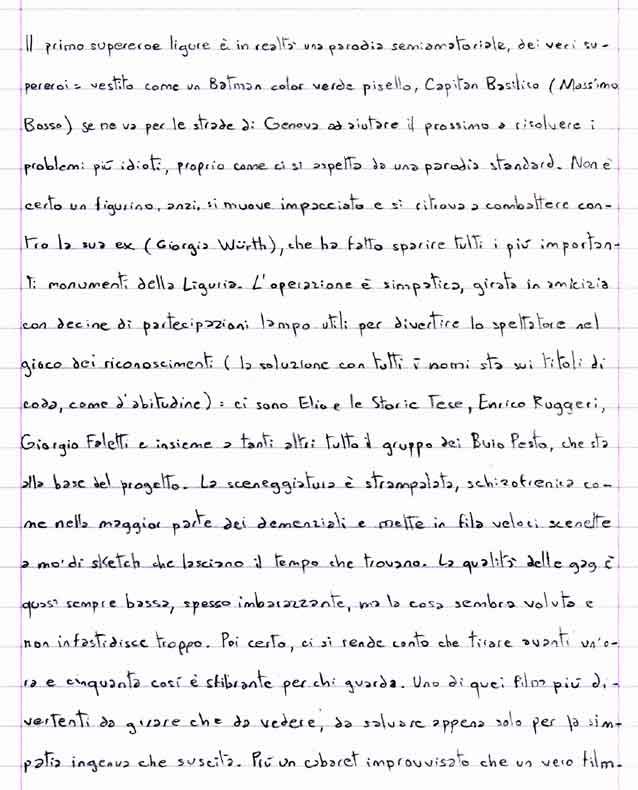 Il primo supereroe ligure è in realtà una parodia semiamatoriale, dei veri su-
pereroi: vestito come un Batman color verde pisello, Capitan Basilico (Massimo
Bosso) se ne va per le strade di Genova ad aiutare il prossimo a risolvere i
problemi più idioti, proprio come ci si aspetta da una parodia standard. Non è
certo un figurino, anzi, si muove impacciato e si ritrova a combattere con-
tro la sua ex (Giorgia Würth), che ha fatto sparire tutti i più importan-
ti monumenti della Liguria. L'operazione è simpatica, girata in amicizia
con decine di partecipazioni lampo utili per divertire lo spettatore nel
gioco dei riconoscimenti (la soluzione con tutti i nomi sta sui titoli di
coda, come d'abitudine): ci sono Elio e le Storie Tese, Enrico Ruggeri,
Giorgio Faletti e insieme a tanti altri tutto il gruppo dei Buio Pesto, che sta
alla base del progetto. La sceneggiatura è strampalata, schizofrenica co-
me nella maggior parte dei demenziali e mette in fila veloci scenette
a mo' di sketch che lasciano il tempo che trovano. La qualità delle gag è
quasi sempre bassa, spesso imbarazzante, ma la cosa sembra voluta e
non infastidisce troppo. Poi certo, ci si rende conto che tirare avanti un'o-
ra e cinquanta così è sfibrante per chi guarda. Uno di quei film più di-
vertenti da girare che da vedere, da salvare appena solo per la sim-
patia ingenua che suscita. Più un cabaret improvvisato che un vero film.